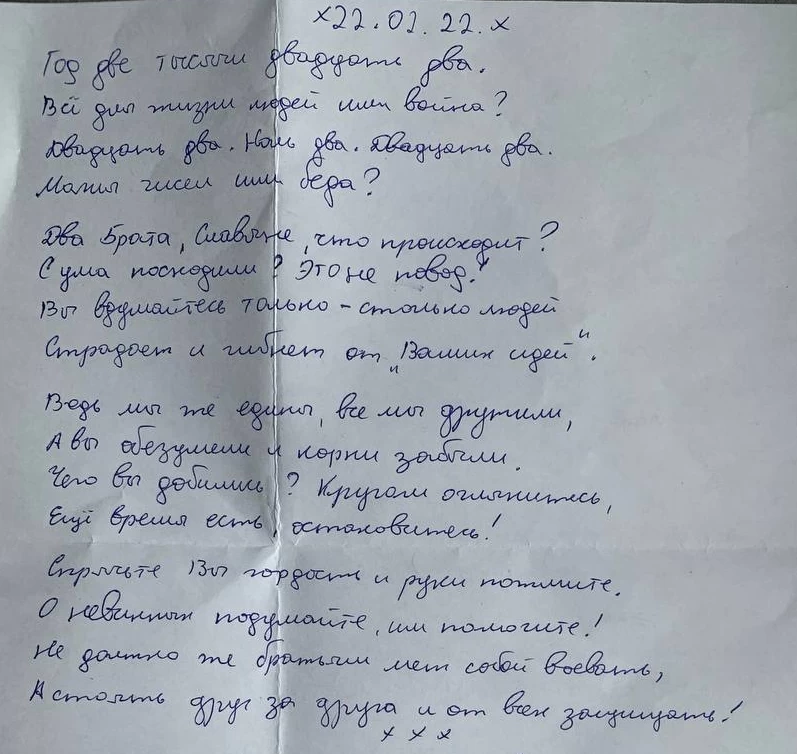 ×22.02.22.×
Год две тысячи двадцать два.
Всё для жизни людей или война?
Двадцать два. Ноль два. Двадцать два.
Магия чисел или беда?
Два Брата, Славяне, что происходит?
С ума посходили? Это не повод!
Вы вдумайтесь только – столько людей
Страдает и гибнет от „Ваших идей".
Ведь мы же едины, все мы дружили,
А вы обезумели и корни забыли.
Чего вы добились? Кругом оглянитесь,
Ещё время есть, остановитесь!
Спрячьте Вы гордость и руки пожмите.
О невинных подумайте, им помогите!
Не должно же братьям меж собой воевать,
А стоять друг за друга и от всех защищать!
× × ×